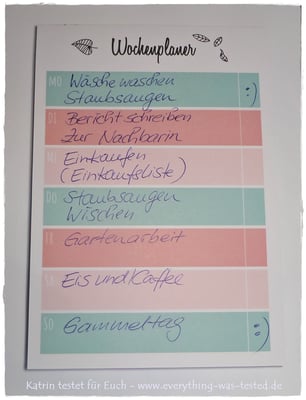 Wochenplaner
MO Wäsche waschen :)
Staubsaugen
DI Bericht schreiben
Zur Nachbarin
MI Einkaufen
(Einkaufsliste)
DO Staubsaugen
Wischen
FR Gartenarbeit
SA Eis und Kaffee
SO Gammeltag :)
Katrin testet für Euch - www.everything-was-tested.de